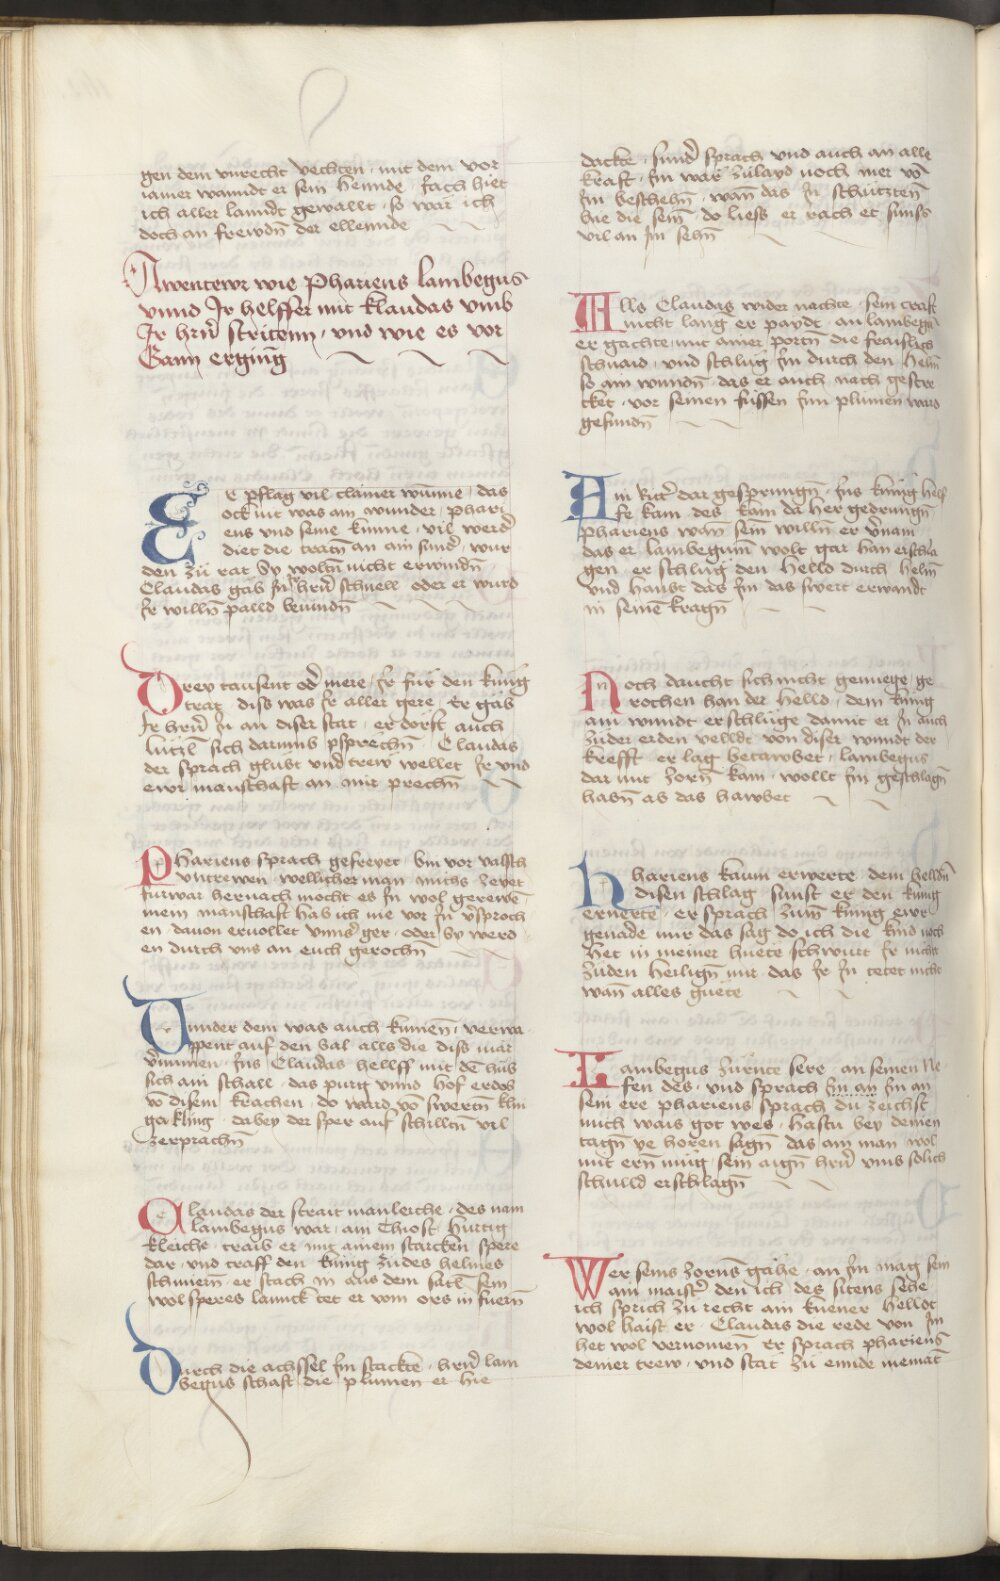 gen dem vnrecht vechten · mit dem vor
iamer wanndt er sein hennde · fach hiet
ich aller lanndt gewallt · so war ich
doch an frewdn̄ der ellennde
Awentewr wie Phariens lambegus
vnnd Ir helffer mit klaudas vmb
Ir hrn̄ stritenn · vnd wie es vor
Gann erging
E pflag vil clainer wunne · das
ock nit was am wunder · phari
ens vnd seine kunne · vil werd͛
diet die tratn̄ an ain sund͛ · wur
den zü rat Sy woltn̄ nicht erwindn̄
Claudas gab In͛ hrn̄ schnell oder er wurd
Ir willn̄ palld beuindn̄
Drey tausent od͛ mere · Ir für den kunig
trat · diss was Ir aller gere · Er gäb
Ir hrn̄ In an diser stat · er dorft auch
lützl̄ sich darumb psprechn̄ · Claudas
der sprach glübt vnd trew wellet Ir vnd
ewr manschaft an mir prechn̄
Phariens sprach gefreyet · bin vor valsch
vntrewen · wellicher man michs zeyet
fürwar hernach mocht es In wol gerewē
mein manschaft hab ich nie vor In v͛sproch
en · dauon eruollet vnns͛ ger · oder Sy werd
en durch vns an euch gerochn̄
Vnnder dem was auch kumen̄ · verwa
ppent auf den Sal alls die diss mär
v͛numen · Ins Claudas hellff mit dē hüb
sich ain schall · das purg vnnd hof erdos
vō disem krachen · do ward vō swertn̄ klin
ga kling · dabey der sper auf schilltn̄ vil
zerprachn̄
Claudas der strait manleiche · des nam
lambegus war · ain Thiost hurtig
kleiche · traib er mit ainem starcken spere
dar · vnd traff den kunig zu des helmes
schniern̄ · er stach In aus dem satl̄ sein
wol speres lannck tet er vom ors in fuern̄
Durch die achssel Im stackte · hrn̄ lam
begus schaft die plumen er hie
dackte · sund͛ sprach vnd auch an alle
kraft · Im war zülayd noch mer vō
Im beschehn̄ · wan̄ das In schutztn̄
hie die sein̄ · do liess er rach et sunss
vil an Im sehn̄
Alls Claudas wider nachte · sein craft
nicht lang er spardt · an lambegū
er gachte · mit ainer portn̄ die fraislich
schuard · vnd schlug Im durch den helm̄
so ain wundn̄ · das er auch nach gestre
cket · vor seinen füssen Inn plumen ward
gefundn̄
Ain Rittr͛ dar gesprungn̄ · Ins kunig helf
fe kam · des kam da her gedrungn̄
Phariens wan̄ sein willn̄ er v͛nam
das er lambegum̄ wolt gar han erschla
gen · er schlug den Helld durch helm̄
vnd haubt das Im das swert erwandt
in seinē kragn̄
Noch daucht sich nicht genuege ge
rochen han der helld · dem kunig
ain wundt er schlüge damit er In auch
zuder erden velldt · von diser wundt der
krefft · er lag betawbet · lambegus
dar mit zorn̄ kam · wollt Im geschlagn̄
habn̄ ab das hawbet
Phariens kaum erwerte · dem helldn̄
disen schlag · sunst er den kunig
ernerte · er sprach zum̄ kunig ewr
genade mir das sag do ich die kind noch
het in meiner huete schwurt Ir nicht
zuden heilign̄ mir · das Ir In tetet nicht
wan̄ alles guete
Lambegus zürnte sere · an seinen Ne
fen des · vnd sprach Im an Im an
sein ere Phariens sprach du zeichst
mich wais got wes · hastu bey deinen
tagn̄ ye horen sagn̄ das ain man wol
mit ern̄ müg · sein aign̄ hrn̄ vmb solich
schulld erschlagn̄
Wer seins zorns̄ gähe · an Im mag sein
ain maistr͛ den ich des sitens sehe
ich sprich zu recht ain kuener helldt
wol haist er · Claudas die rede von Im
het wol vernomen̄ Er sprach Phariens
deiner trew · vnd stat zü ennde niemāt